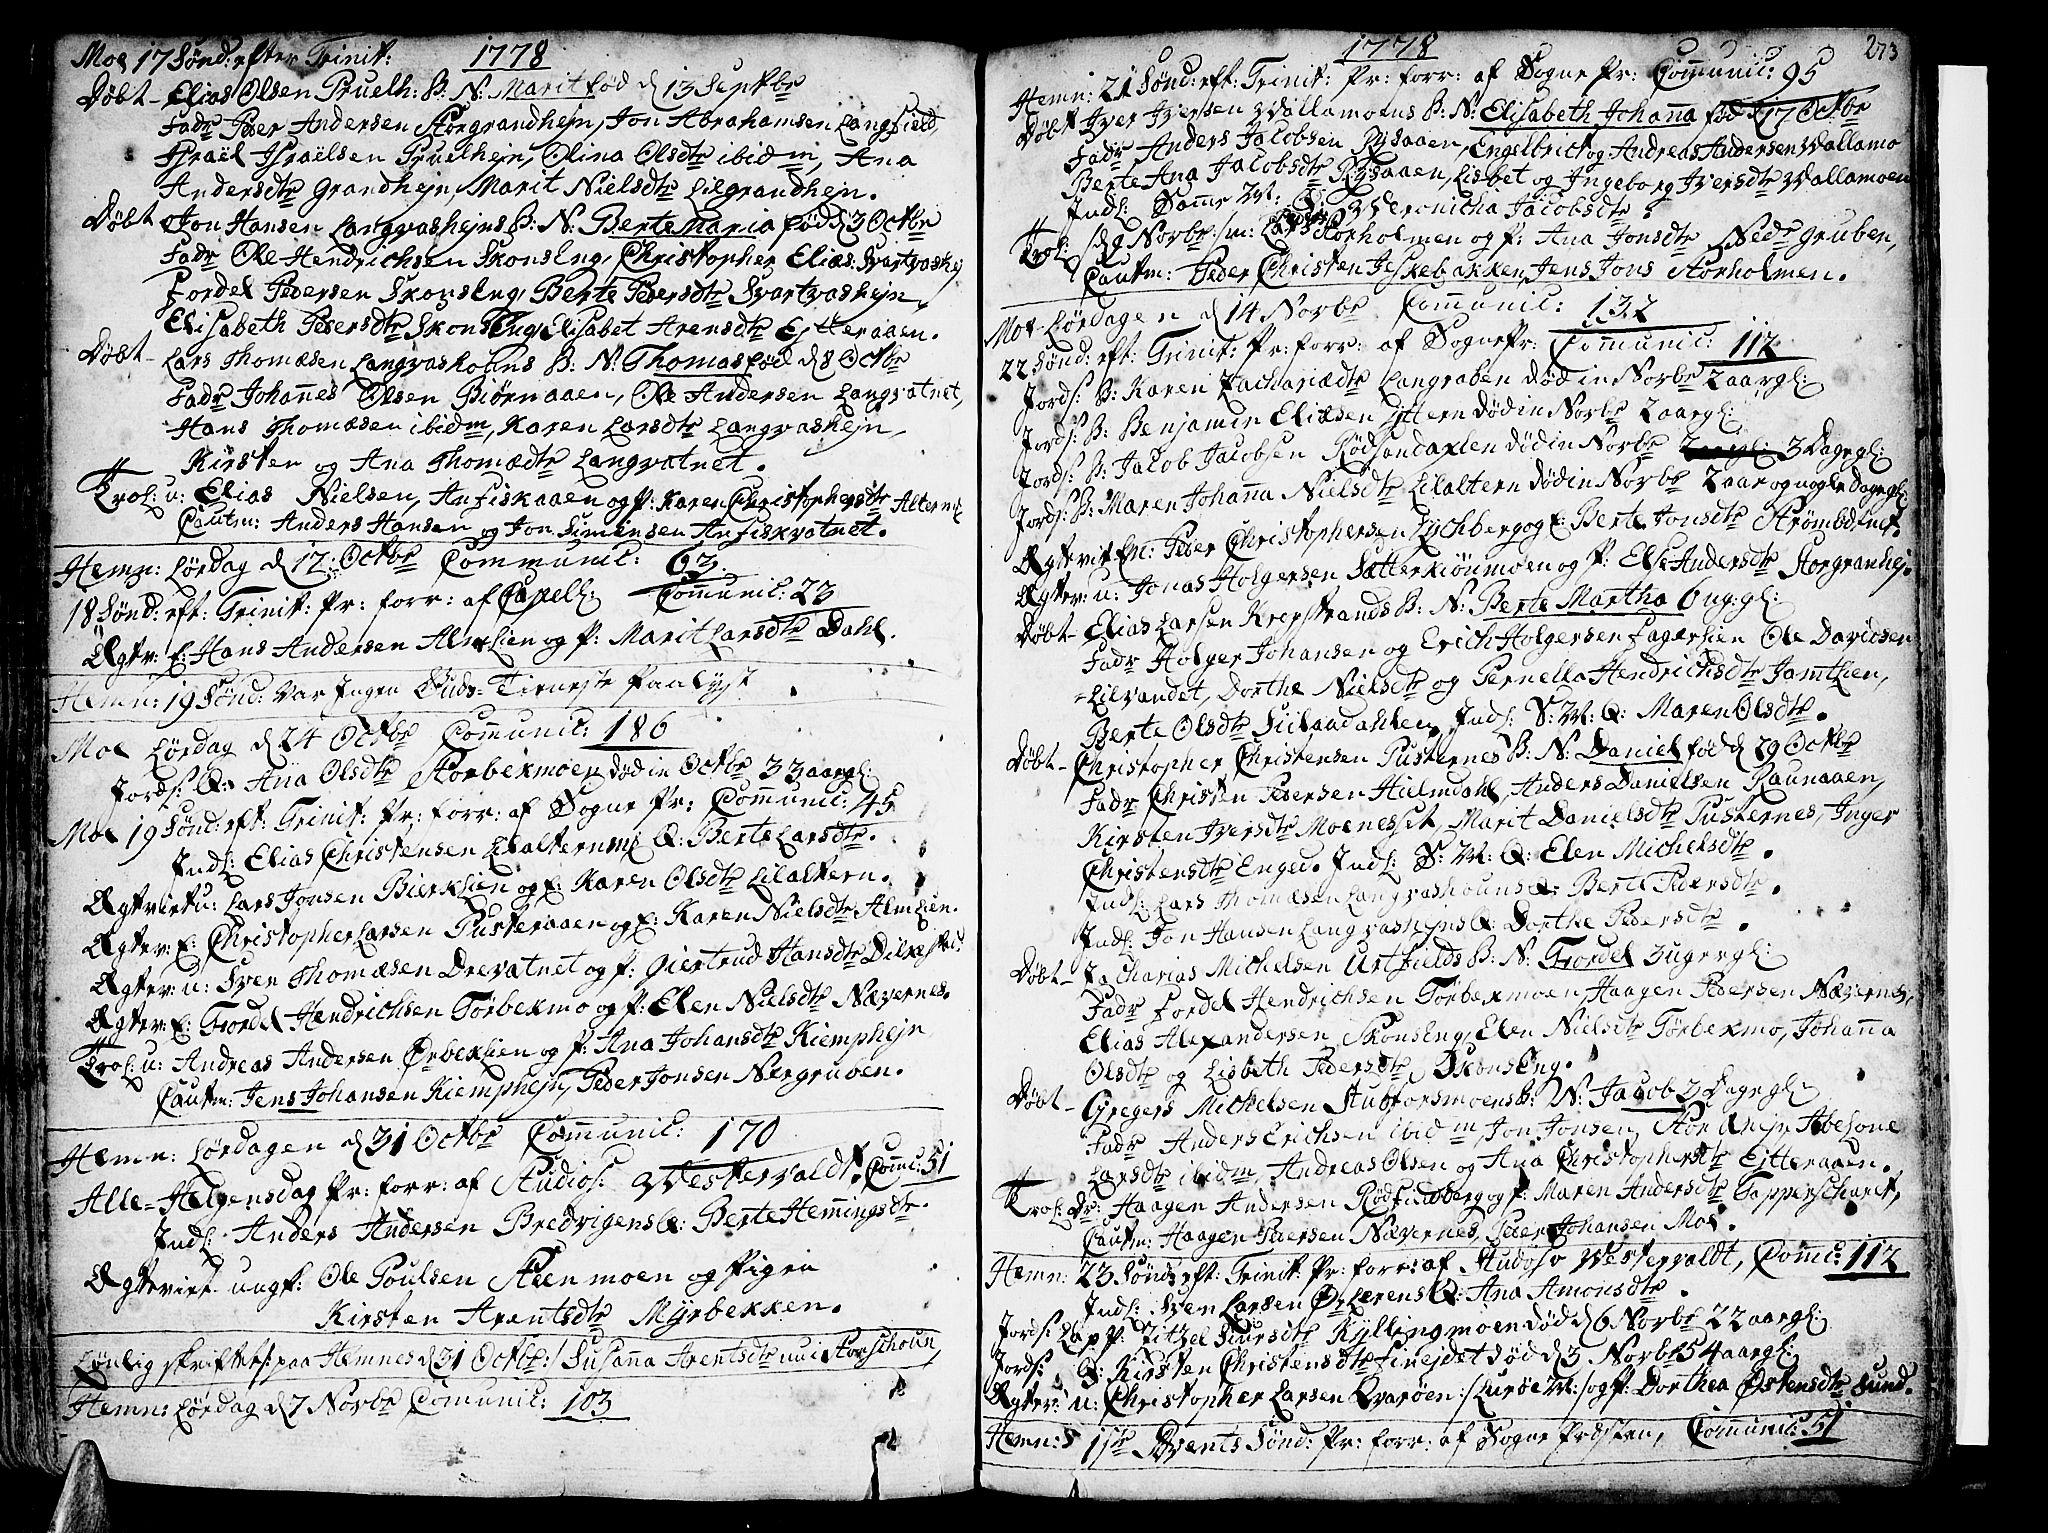 Moe 17 Sønd: efter Trinit: 1778
Døbt - Elias Olsen Pruelh: B: N: Marit fød d 13 Septbr
Fadr Peder Andersen Storgrandhejn, Jon Abrahamsen Langfield,
Israël Israëlsen Pruelhejn, Olina Olsdtr ibidm, Ana
Andersdtr Grandhejn, Marit Nielsdtr Lilgrandhejn.
Døbt Jon Hansen Langvashejns B: N: Berte Maria fød d 3 Octbr
Fadr Ole Hendrichsen Skonseng, Christopher Elias: Svartvashej
Tordel Pedersen Skonseng, Berte Pedersdtr Svartvashejn,
Elisabeth Pedersdtr Skonseng, Elisabet Arensdtr Ejtteraaen.
Døbt - Lars Thomæsen Langvashouns B: N: Thomas fød d 8 Octbr
Fadr Johannes Olsen Biørnaaen, Ole Andersen Langvatnet,
Hans Thomæsen ibidm, Karen Larsdtr Langvashejn,
Kirsten og Ana Thomædtr Langvatnet.
Trol: u: Elias Nielsen, Anfiskaaen og p: Karen Christophersdtr Altern
Cautm: Anders Hansen og Jon Simensen Anfiskvatnet.
Hemn: Lørdag d 17: Octbr Communic: 63.
18 Sønd: eft: Trinit: Pr: forr: af Capell: Comunic: 23
Ægtv: E: Hans Andersen Almlien og p: Marit Larsdtr Dahl.
Hemn: 19 Sønd: Var Ingen Guds-Tieneste paalyst
Moe Lørdag d 24 Octbr Communic: 186
Jords: Q: Ana Olsdtr Storbekmoen død in Octbr 33 aar gl:
Moe 19 Sønd: eft: Trinit: Pr: forr: af Sogne Pr: Communic: 45
Indl: Elias Christensen Lilalternmj Q: Berte Larsdtr.
Ægtevit u: Lars Jonsen Bierklien og E: Karen Olsdtr Lilaltern.
Ægtev: E: Christopher Larsen Pusteraaen og E: Karen Nielsdtr Almlien.
Ægtev: u: Sven Thomæsen Drevatnet og p: Giertrud Hansdtr
Ægtev: E: Tordel Hendrichsen Tørbekmo og p: Elen Nielsdtr Nævernes.
Trol: u: Andreas Andersen Ørbeklien og p: Ana Johansdtr Kiemphejn
Cautm: Jens Johansen Kiemphejn, Peder Jonsen Nergruben.
Hemn: Lørdagen d 31 Octbr Communic: 170
Alle-Helgensdag Pr: forr: af Studios: Westervaldt. Comnc: 51
Indl: Anders Andersen Bredvigens Q: Berte Hemingsdtr.
Ægtevit ungk: Ole Poulsen Steenmoen og Pigen
Kirsten Arentsdtr Myrbekken.
Lønlig skriftet paa Hemnes d 31 Octbr :/ Susanna Arentsdtr
Hemn: Lørdag d 7 Novbr Comunic: 103
1778 273
Hemn: 21 Sønd: eft: Trinit: Pr: forr: af Sogne Pr: Communic: 95
Døbt Iver Iversen Wallamoens B: N: Elisabeth Johanna fød d 17 Octbr
Fadr Anders Jacobsen Rysaaen, Engelbrict og Andreas Andersen Wallamo
Berte Ana Jacobsdtr Rysaaen, Lisbet og Ingeborg Iversdtr Wallamoen
Indl: Samme W: Q: Weronicha Jacobsdtr.
Trol: d 9 Novbr: m: Lars Storholmen og p: Ana Jonsdtr Nedr Gruben,
Cautm: Peder Christen Jeskebakken, Jens Jons Storholmen.
Moe Lørdagen d 14 Novbr Communic: 132
22 Sønd: eft: Trinit: Pr: forr: af Sogne Pr: Communic: 112
Jords: B: Karen Zachariædtr Langraben død in Novbr 2 aar gl:
Jords: B: Benjamin Eliæsen Yttern død in Novbr 2 aar gl:
Jords: B: Jacob Jacobsen Rødsandaxlen død in Novbr 3 Dage gl:
Jords: B: Maren Johanna Nielsdtr Lilaltern død in Novbr 2 aar og nogle Dage gl:
Ægtevit Em: Peder Christophersen Lychberg og E: Berte Jonsdtr Strømbdsnes.
Ægtev: u: Jonas Holgersen Sætterkiønmoen og p: Else Andersdtr Storgranhej.
Døbt - Elias Larsen Krepstrands B: N: Berte Martha 6 ug: gl:
Fadr Holger Johansen og Erich Holgersen Fagerlien Ole Davidsen
Lilvandet, Dorthe Nielsdtr og Pernella Hendrichsdtr Jamtlien,
Berte Olsdtr Indl: S: W: Q: Maren Olsdtr.
Døbt - Christopher Christensen Pusternes B: N: Daniel fød d 29 Octbr
Fadr Christen Pedersen Hiilmdahl, Anders Danielsen Raunaaen,
Kirsten Iversdtr Moenessit, Marit Danielsdtr Pusternes, Inger
Christensdtr Enged. Indl: S: W: Q: Elen Michelsdtr.
Indl: Lars Thomæsen Langvashouns Q: Berte Pedersdtr.
Indl: Jon Hansen Langvashejns Q: Dorthe Pedersdtr.
Døbt - Zacharias Michelsen Urtfields B: N: Tordel 3 uger gl:
Fadr Tordel Hendrichsen Tørbekmoen, Haagen Pedersen Nævernes,
Elias Alexandersen Skonseng, Elen Nielsdtr Tørbekmo, Johanna
Olsdtr og Lisbeth Pedersdtr Skonseng.
Døbt - Gregers Michelsen Stubforsmoens B: N: Jacob 3 Dage gl:
Fadr Anders Erichsen ibidm, Jon Jonsen, Abelone
Larsdtr ibidm, Andreas Olsen og Ana Christophersdtr Ejtteraaen.
Trol: Dr: Haagen Andersen Rødfieldberg og p: Maren Andersdtr Topperscharet,
Cautm: Haagen Pedersen Nævernes, Peder Johansen Moe.
Hemn: 23 Sønd: eft: Trinit: Pr: forr: af Studioso Westervaldt, Comc: 112
Indl: Sven Larsen Ø. Lerens Q: Ana Amonsdtr.
Jords: Lapp: P: Zitzel Siursdtr Kyllingmoen død d 6 Novbr 22 aar gl:
Jords: Q: Kirsten Christensdtr Finejdet død d 3 Novbr 54 aar gl:
Ægtev: u: Christopher Larsen Qvarøen :/ Lurøe W:/ og p: Dorthea Østensdtr Sund.
Hemn: 1ste Advents Sønd: Pr: forr: af Sogne Præsten, Communic: 51